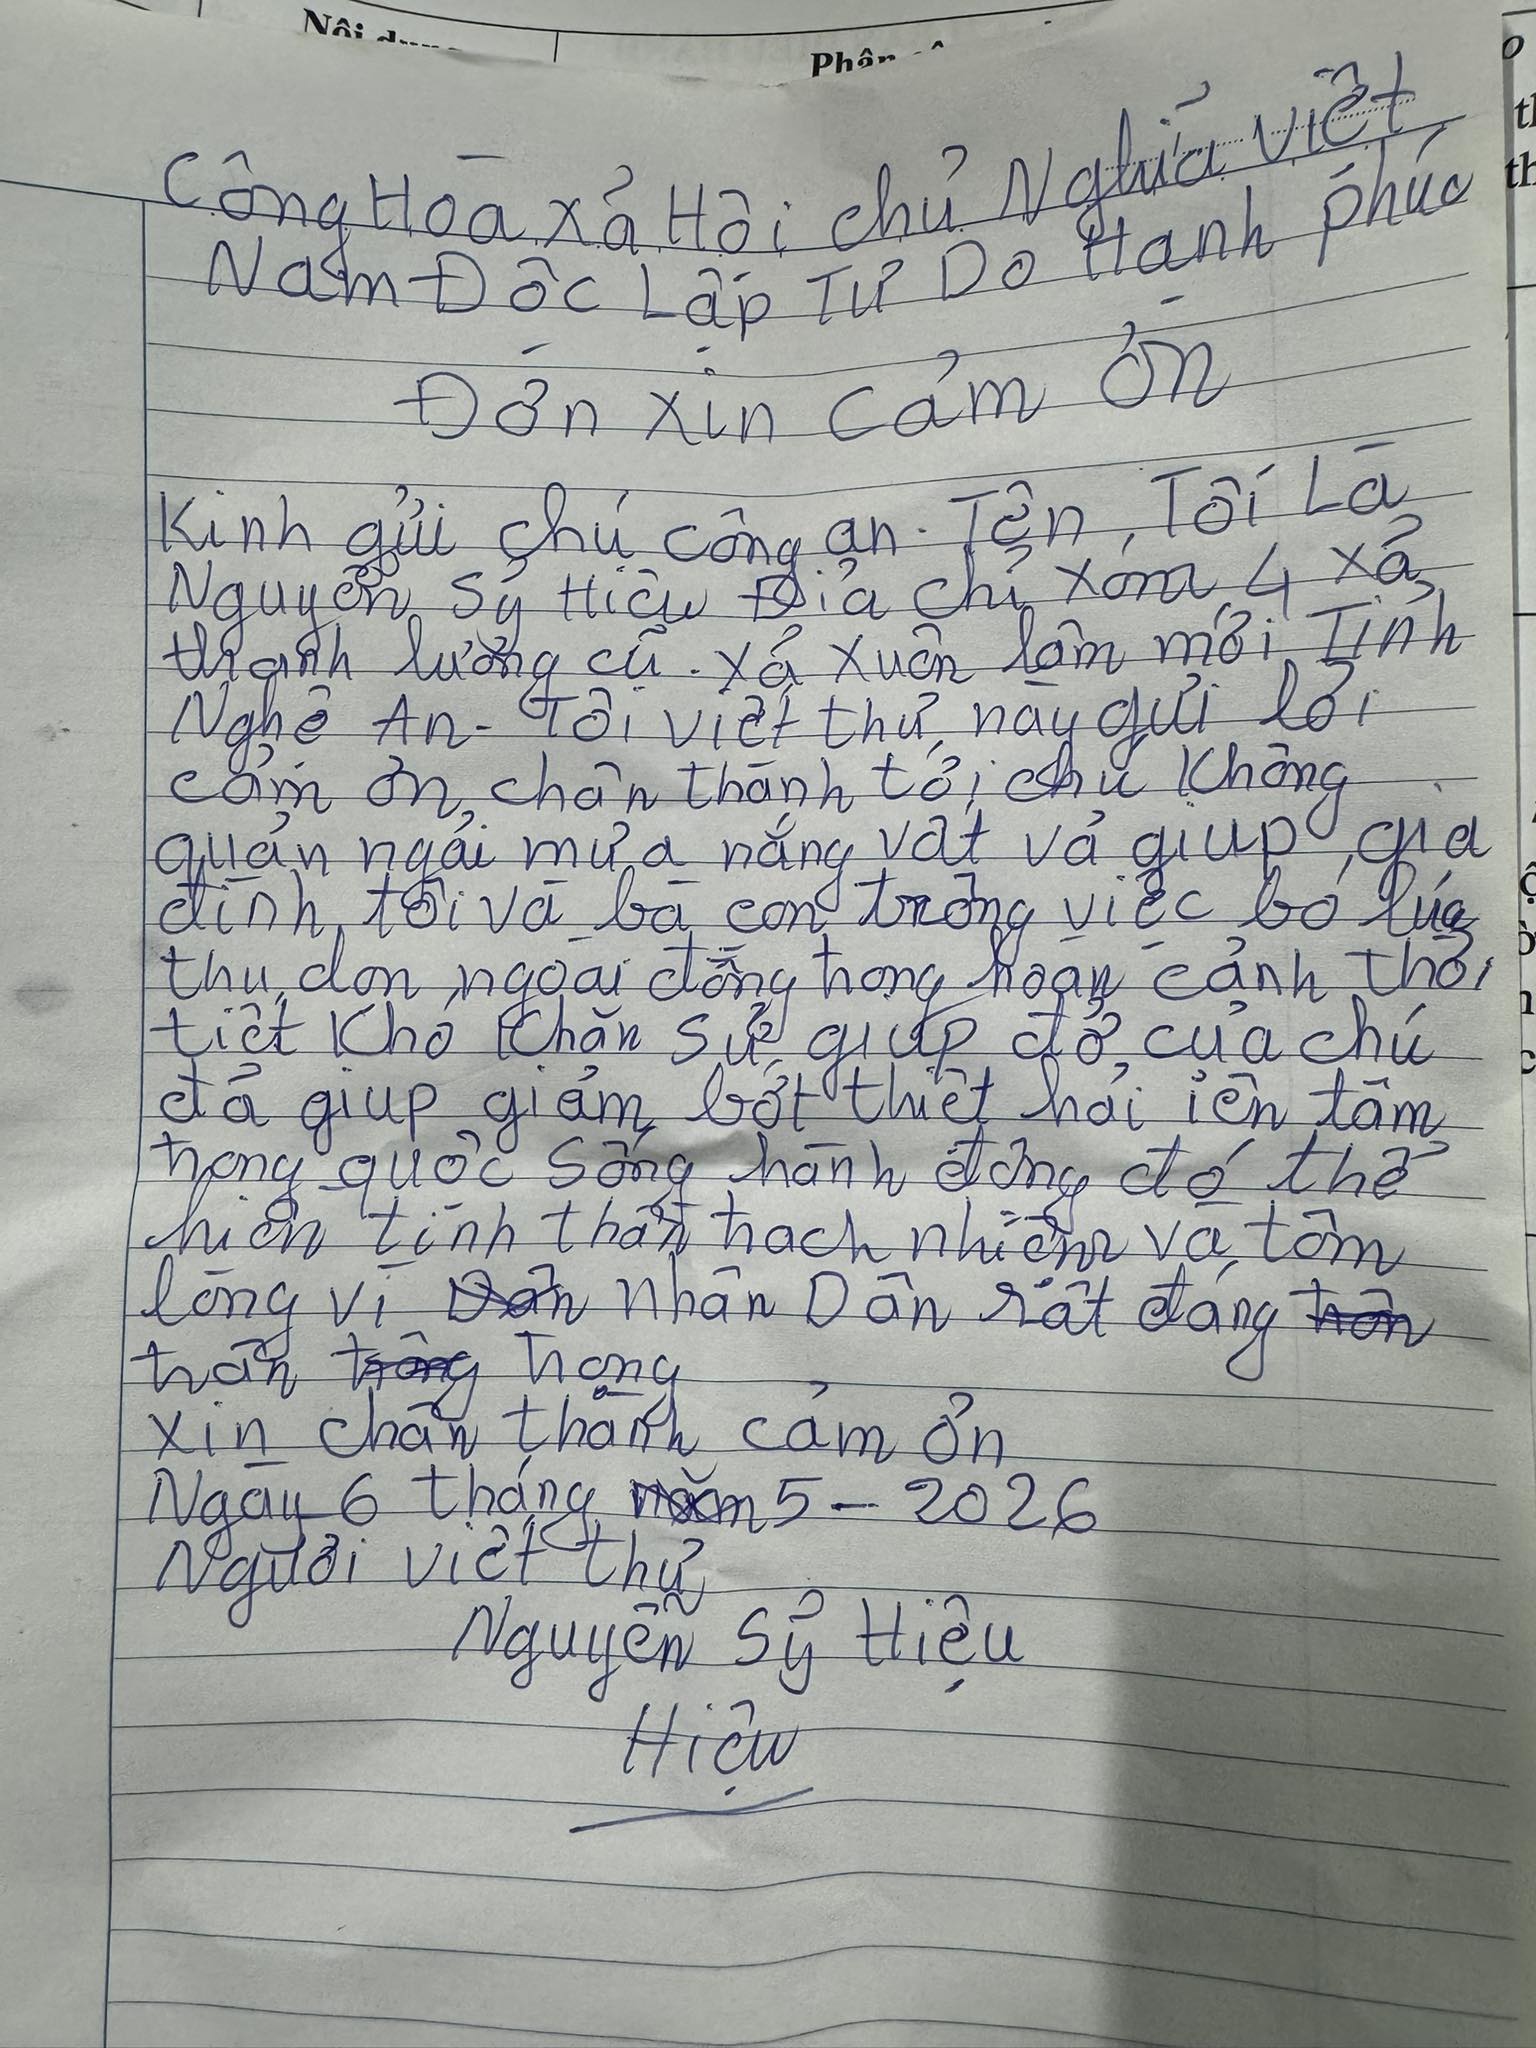 Nội dung
Phân
Công Hòa xả Hôi chủ Nghĩa Việt
Nam Đôc Lâp Tư Do Hanh phúc
Đơn xin cảm ơn
Kinh gửi chú công an. Tên, Tôi Là
Nguyễn Sỹ Hiêu Địa chỉ xóm 4 xả
thanh lương cũ. xả xuân lâm mới Tỉnh
Nghê An - Tôi viết thư này gửi lời
cảm ơn chân thành tới chú Không
quản ngải mưa nắng vât vả giup gia
đình tôi và bà con trong việc bó lúa
thu don ngoài đồng trong hoàn cảnh thời
tiết Khó Khăn Sư giup đở của chú
đả giup giảm bớt thiêt hải iên tâm
trong quôc Sống hành đông đó thể
hiên tinh thần trach nhiêm và tâm
lòng vì nhân Dân rất đáng
trân trọng
xin chân thành cảm ơn
Ngày 6 tháng 5 - 2026
Người viết thư
Nguyễn Sỹ Hiệu
Hiệu